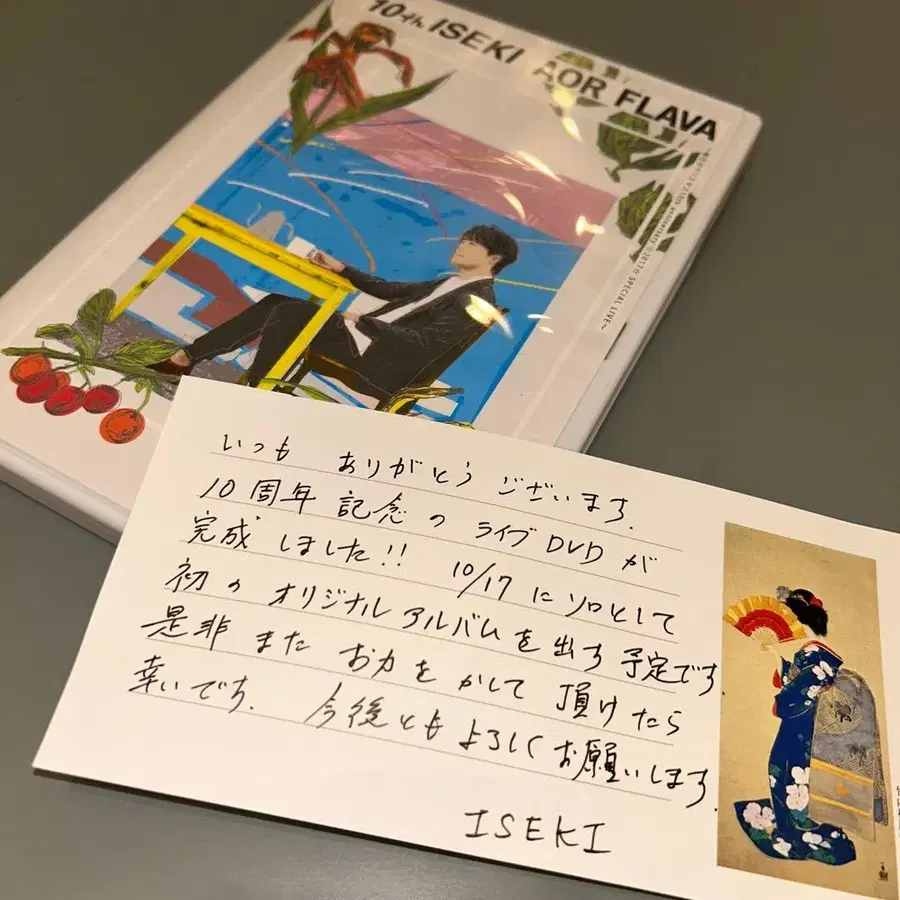 10th ISEKI AOR FLAVA
いつも ありがとう ございます.
10周年 記念の ライブDVDが
完成 しました!! 10/17 に ソロとして
初の オリジナルアルバムを出す予定です.
是非 また お力を かして 頂けたら
幸いです. 今後とも よろしくお願いします.
ISEKI